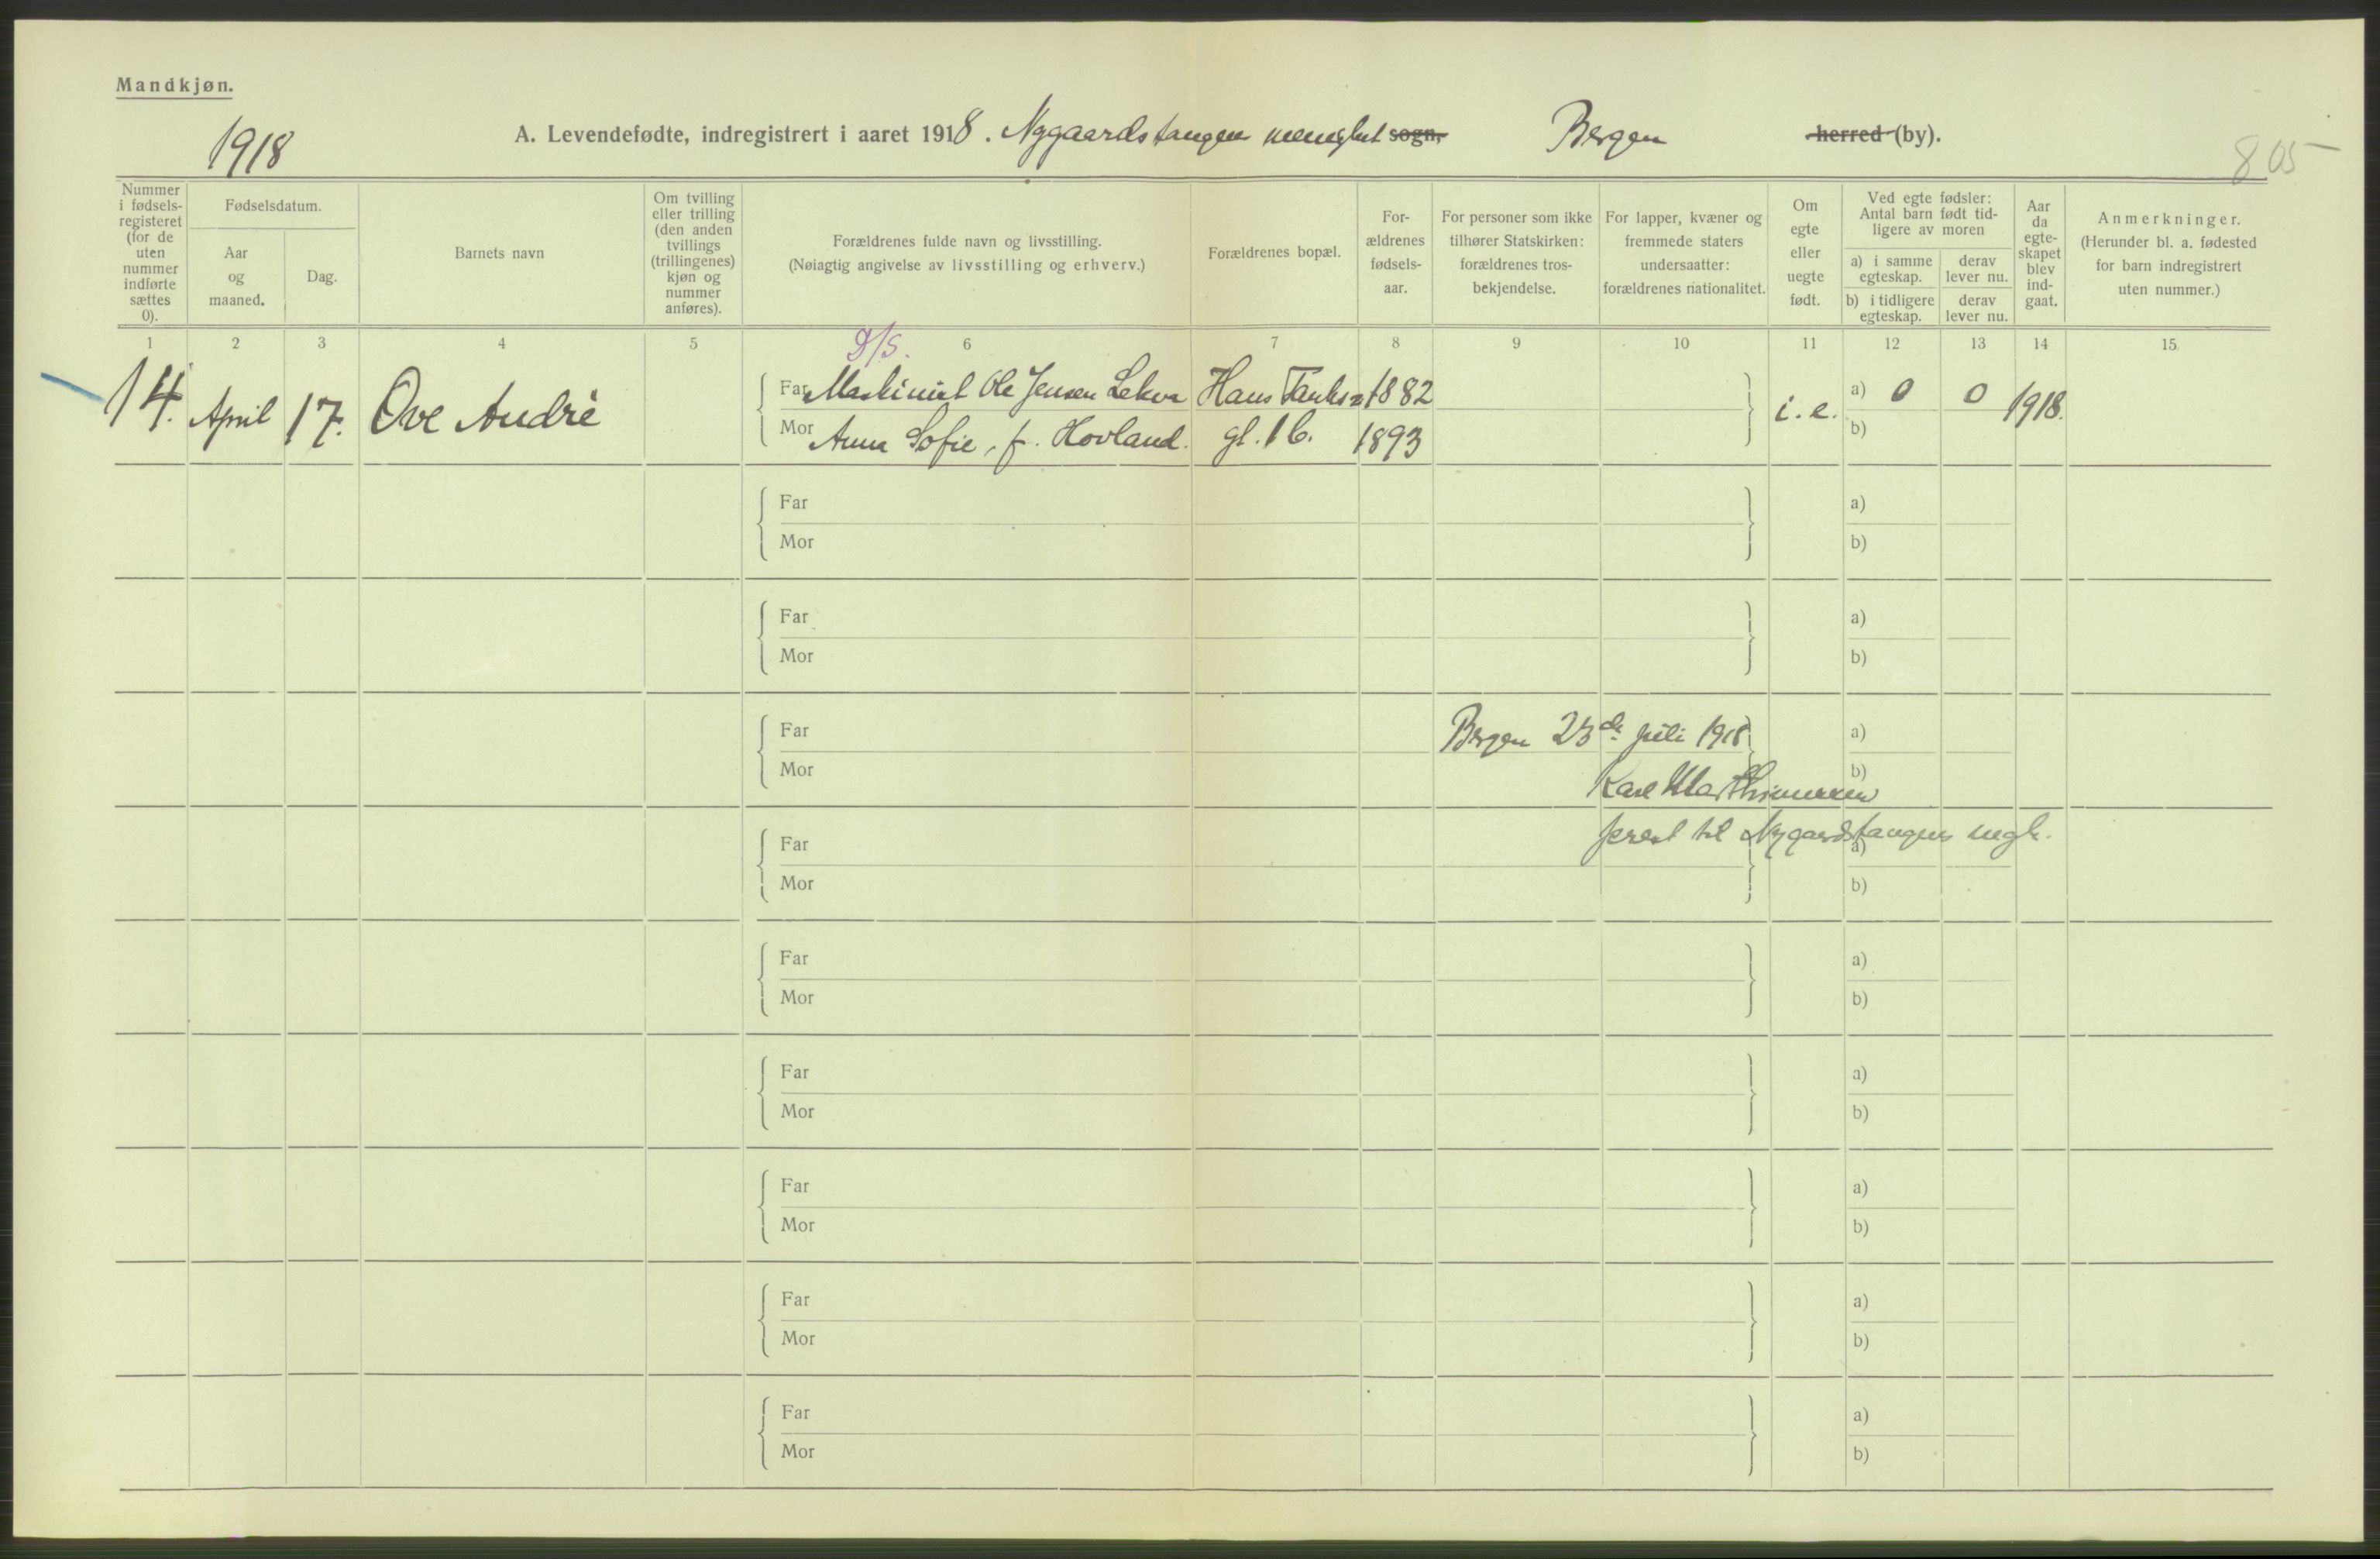 Mandkjøn.
1918
A. Levendefødte, indregistrert i aaret 1918. Nygaardstangen menighet sogn, Bergen herred (by).
805
Nummer i fødsels-registeret (for de uten nummer indførte sættes 0).
Fødselsdatum.
Aar og maaned.
Dag.
Barnets navn
Om tvilling eller trilling (den anden tvillings (trillingenes) kjøn og nummer anføres).
Forældrenes fulde navn og livsstilling.
(Nøiagtig angivelse av livsstilling og erhverv.)
Forældrenes bopæl.
For-ældrenes fødsels-aar.
For personer som ikke tilhører Statskirken: forældrenes tros-bekjendelse.
For lapper, kvæner og fremmede staters undersaatter: forældrenes nationalitet.
Om egte eller uegte født.
Ved egte fødsler: Antal barn født tid-ligere av moren
a) i samme egteskap.
derav lever nu.
b) i tidligere egteskap.
derav lever nu.
Aar da egte-skapet blev ind-gaat.
Anmerkninger.
(Herunder bl. a. fødested for barn indregistrert uten nummer.)
1 2 3 4 5 6 7 8 9 10 11 12 13 14 15
D/S.
14. April 17. Ove Andrè
Far Maskinist Ole Jensen Lekva Hans Tanks= 1882
Mor Anna Sofie, f. Hovland. gt. 16. 1893
i. e. a) 0 0 1918.
b)
Far a)
Mor b)
Far a)
Mor b)
Far Bergen 23de juli 1918 a)
Mor Karl Marthinussen b)
prest til Nygaardstangens mgh.
Far a)
Mor b)
Far a)
Mor b)
Far a)
Mor b)
Far a)
Mor b)
Far a)
Mor b)
Far a)
Mor b)